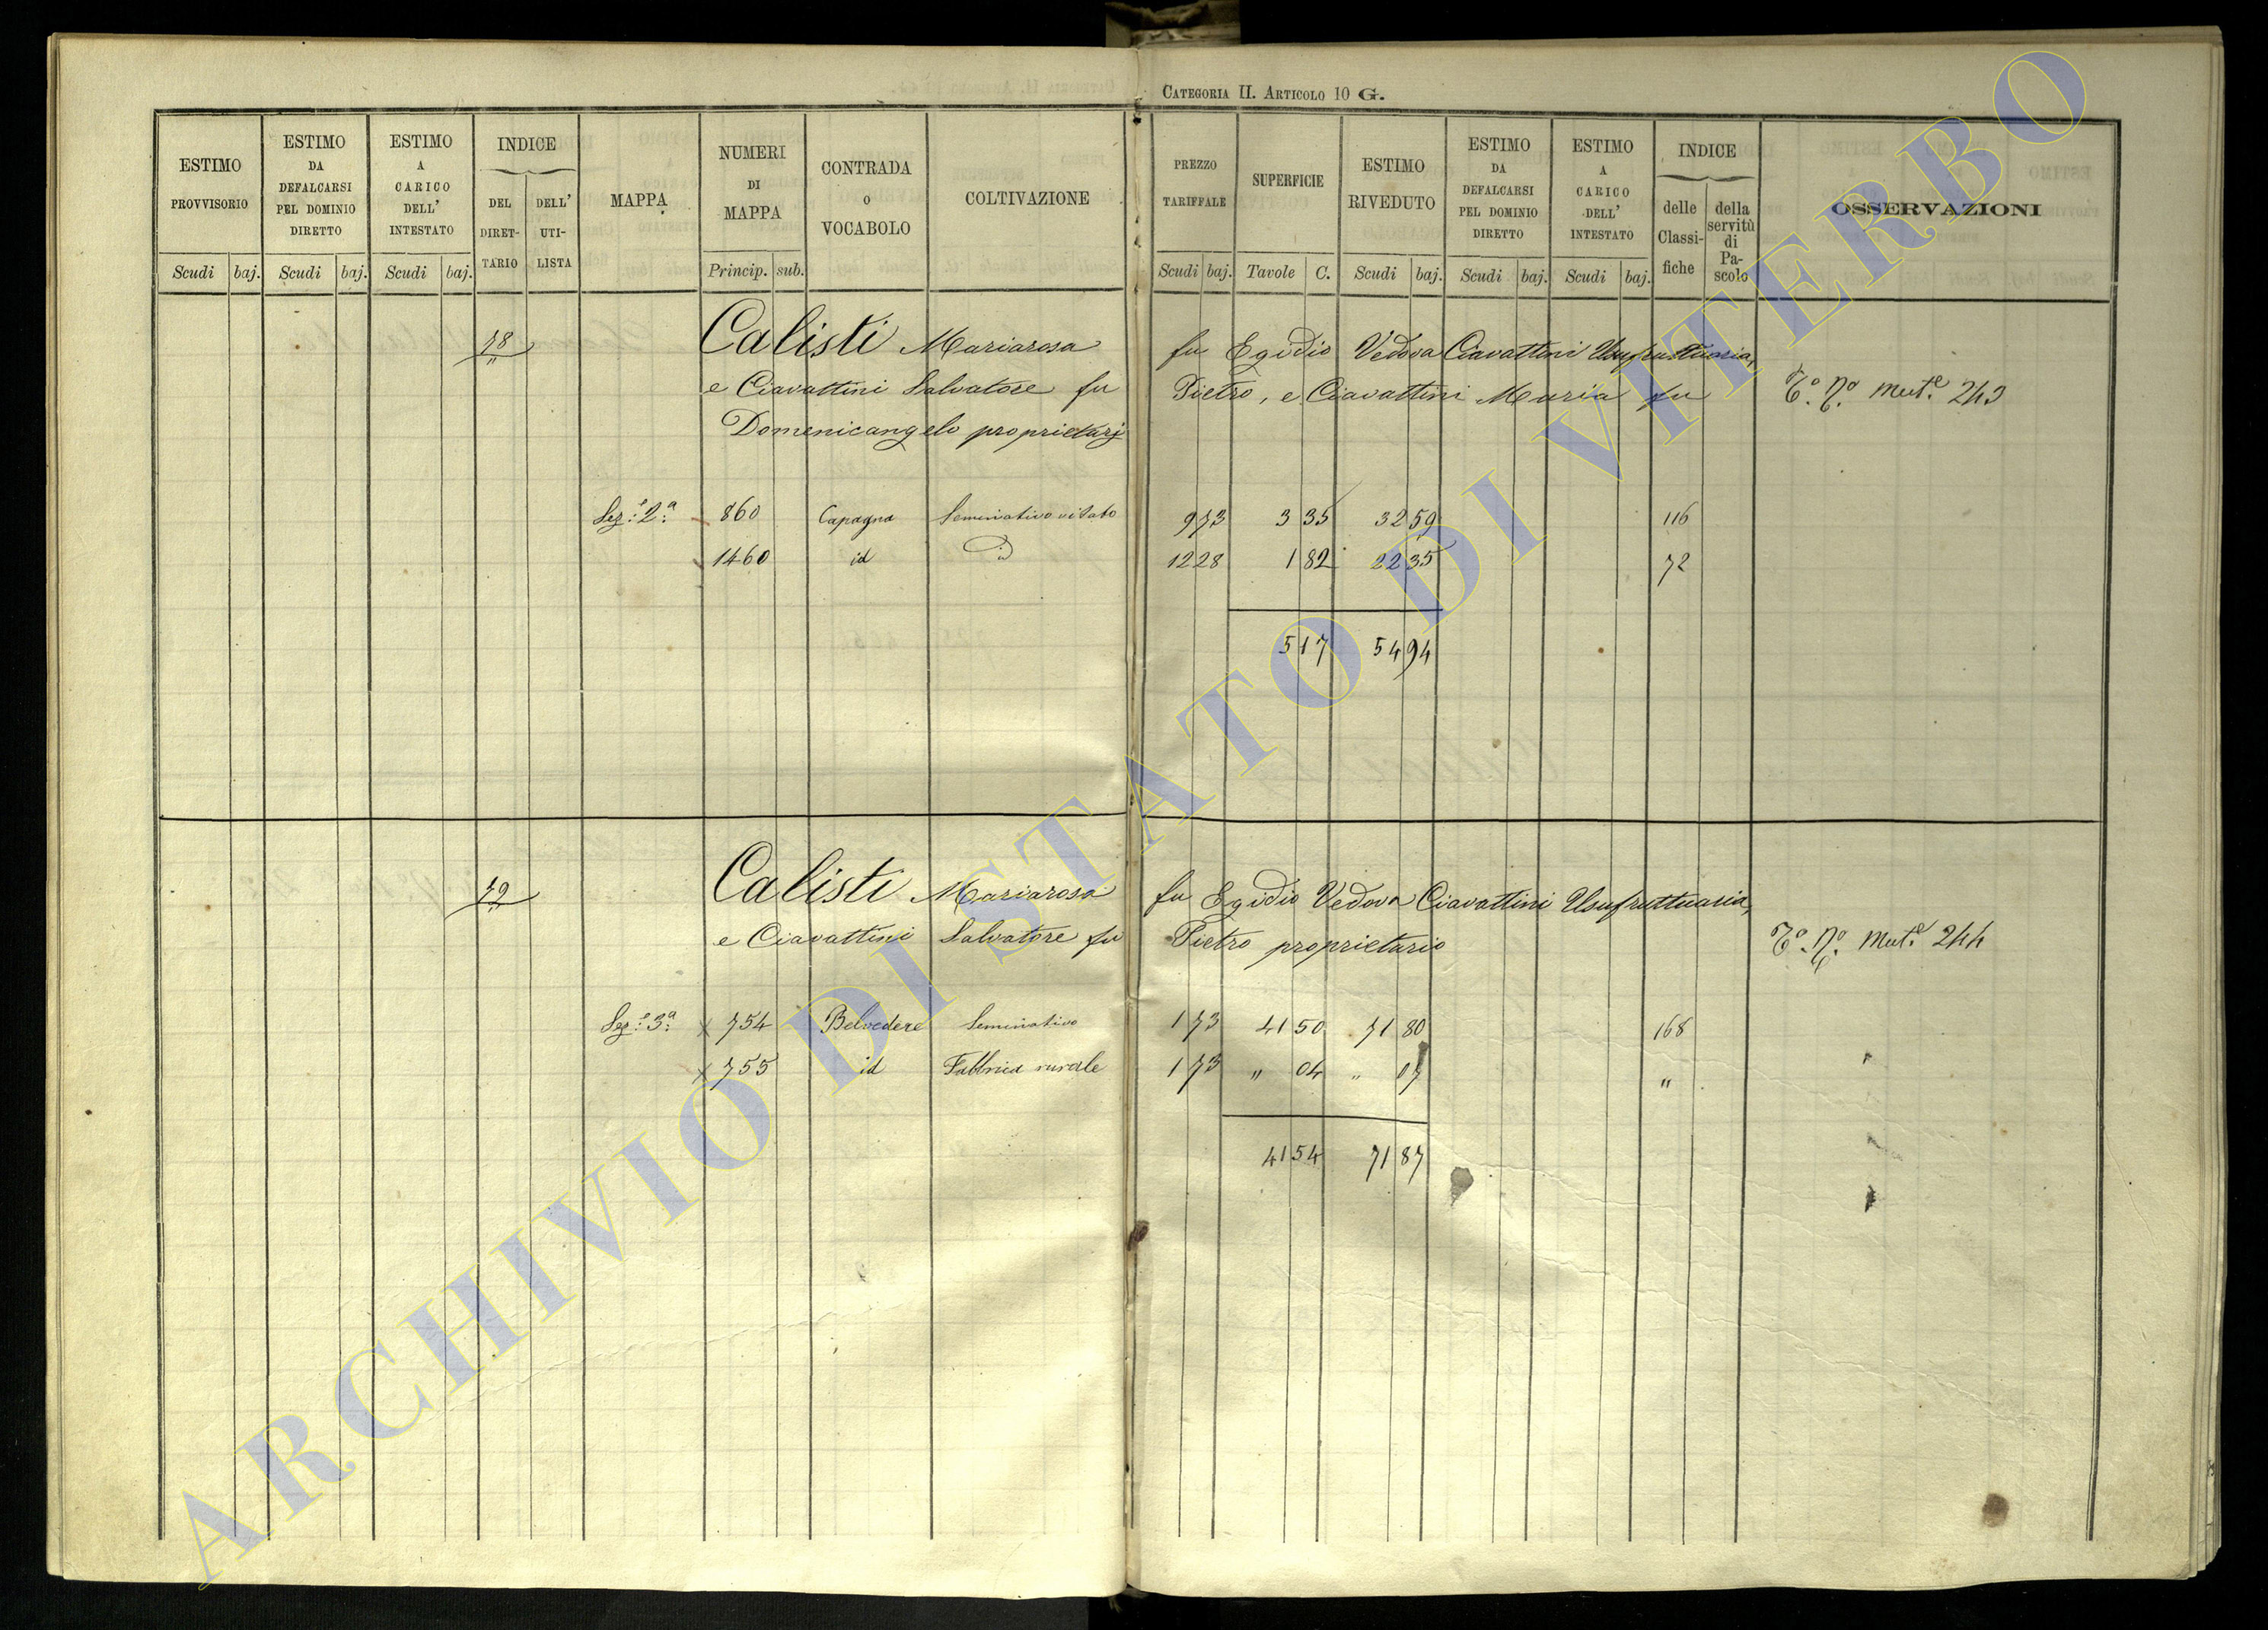 CATEGORIA II. ARTICOLO 10 G.
ESTIMO PROVVISORIO
ESTIMO DA DEFALCARSI PEL DOMINIO DIRETTO
ESTIMO A CARICO DELL' INTESTATO
INDICE
DEL DIRETTARIO
DELL' UTILISTA
MAPPA
NUMERI DI MAPPA
CONTRADA O VOCABOLO
COLTIVAZIONE
PREZZO TARIFFALE
SUPERFICIE
ESTIMO RIVEDUTO
ESTIMO DA DEFALCARSI PEL DOMINIO DIRETTO
ESTIMO A CARICO DELL' INTESTATO
INDICE
delle Classifiche
della servitù di Pascolo
OSSERVAZIONI
Scudi baj. Scudi baj. Scudi baj. Princip. sub. Scudi baj. Tavole C. Scudi baj. Scudi baj. Scudi baj.
78 Calisti Mariarosa fu Egidio Vedova Ciavattini Usufruttuaria,
e Ciavattini Salvatore fu Pietro, e Ciavattini Maria fu Mut.e 243
Domenicangelo proprietarj
Sez.e 2.a 860 Capagna Seminativo vitato 9 73 3 35 32 59 116
1460 id id 12 28 1 82 22 35 72
5 17 54 94
79 Calisti Mariarosa fu Egidio Vedova Ciavattini Usufruttuaria,
e Ciavattini Salvatore fu Pietro proprietario Mut.e 244
Sez.e 3.a 754 Belvedere Seminativo 1 73 41 50 71 80 168
755 id Fabbrica rurale 1 73 " 04 " 07 "
41 54 71 87
ARCHIVIO DI STATO DI VITERBO